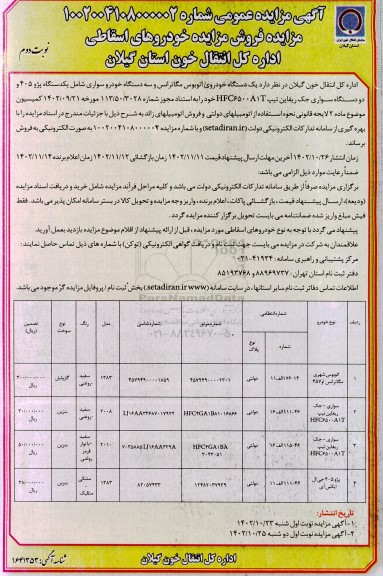 آگهی مزایده عمومی شماره ۱۰۰۲۰۰۴۱۰۸۰۰۰۰۰۲
مزایده فروش مزایده خودروهای اسقاطی
اداره کل انتقال خون استان گیلان
نوبت دوم
اداره کل انتقال خون گیلان در نظر دارد یک دستگاه خودروی اتوبوس مگاترانس و سه دستگاه خودرو سواری شامل یکدستگاه پژو ۴۰۵ و
دو دستگاه سواری جک ریفاین تیپ HFC۶۵۰۰A۱T خود را به استناد مجوز شماره ۱۱۳۵۰/۳۰۲۸ مورخه ۱۴۰۲/۰۹/۲۱ کمیسیون
موضوع ماده ۲ لایحه قانونی نحوه استفاده از اتومبیلهای دولتی و فروش اتومبیلهای زائد به شرح ذیل با جزئیات مندرج در اسناد مزایده را با
بهره گیری از سامانه تدارکات الکترونیکی دولت (setadiran.ir) و با شماره مزایده ۱۰۰۲۰۰۴۱۰۸۰۰۰۰۰۲ به صورت الکترونیکی به فروش
برساند.
زمان انتشار ۱۴۰۲/۱۰/۲۶ آخرین مهلت ارسال پیشنهاد قیمت ۱۴۰۲/۱۱/۱۱ زمان بازگشائی ۱۴۰۲/۱۱/۱۲ زمان اعلام برنده ۱۴۰۲/۱۱/۱۴
ضمناً رعایت موارد ذیل الزامی می باشد:
برگزاری مزایده صرفاً از طریق سامانه تدارکات الکترونیکی دولت می باشد و کلیه مراحل فرآیند مزایده شامل خرید و دریافت اسناد مزایده
(ودیعه)، ارسال پیشنهاد قیمت، بازگشائی پاکات، اعلام برنده، واریز وجه مزایده و تحویل کالا در بستر سامانه امکان پذیر می باشد. فقط
فیش مبلغ واریز شده ضمانتنامه می بایست تحویل برگزار کننده مزایده گردد.
پیشنهاد می گردد با توجه به نوع خودروهای اسقاطی مورد مزایده، قبل از ارائه پیشنهاد از اقلام موضوع مزایده بازدید بعمل آورید.
علاقمندان به شرکت در مزایده می بایست جهت ثبت نام و دریافت گواهی الکترونیکی (توکن) با شماره های ذیل تماس حاصل نمایند:
مرکز پشتیبانی و راهبری سامانه: ۴۱۹۳۴-۰۲۱
دفتر ثبت نام استان تهران: ۸۸۹۶۹۷۳۷ و ۸۵۱۹۳۷۶۸
اطلاعات تماس دفاتر ثبت نام سایر استانها، در سایت سامانه (www.setadiran.ir) بخش "ثبت نام / پروفایل مزایده گر" موجود می باشد.
ردیف نوع خودرو شماره انتظامی شماره موتور شماره شاسی مدل رنگ نوع سوخت تضمین ریال
شماره نوع پلاک
۱ اتوبوس شهری مگاترانس ۴۵۷او دولتی ۱۳۸۳ سفید روغنی گازوئیل
۲ سواری - جک ریفاین تیپ HFC۶۵۰۰A۱T دولتی ۲۰۰۸ سفید روغنی بنزین
۳ سواری - جک ریفاین تیپ HFC۶۵۰۰A۱T دولتی ۲۰۱۰ بنزین
۴ پژو ۴۰۵ جی ال ایکس آی دولتی ۱۲۴۸۲۰۳۷۹۲۹ ۸۲۰۵۷۹۳۳ ۱۳۸۳ مشکی متالیک بنزین
تاریخ انتشار:
۱-آگهی مزایده نوبت اول شنبه ۱۴۰۲/۱۰/۲۳
۲-آگهی مزایده نوبت اول دو شنبه ۱۴۰۲/۱۰/۲۵
اداره کل انتقال خون گیلان
شناسه آگهی: ۱۶۴۱۳۵۳